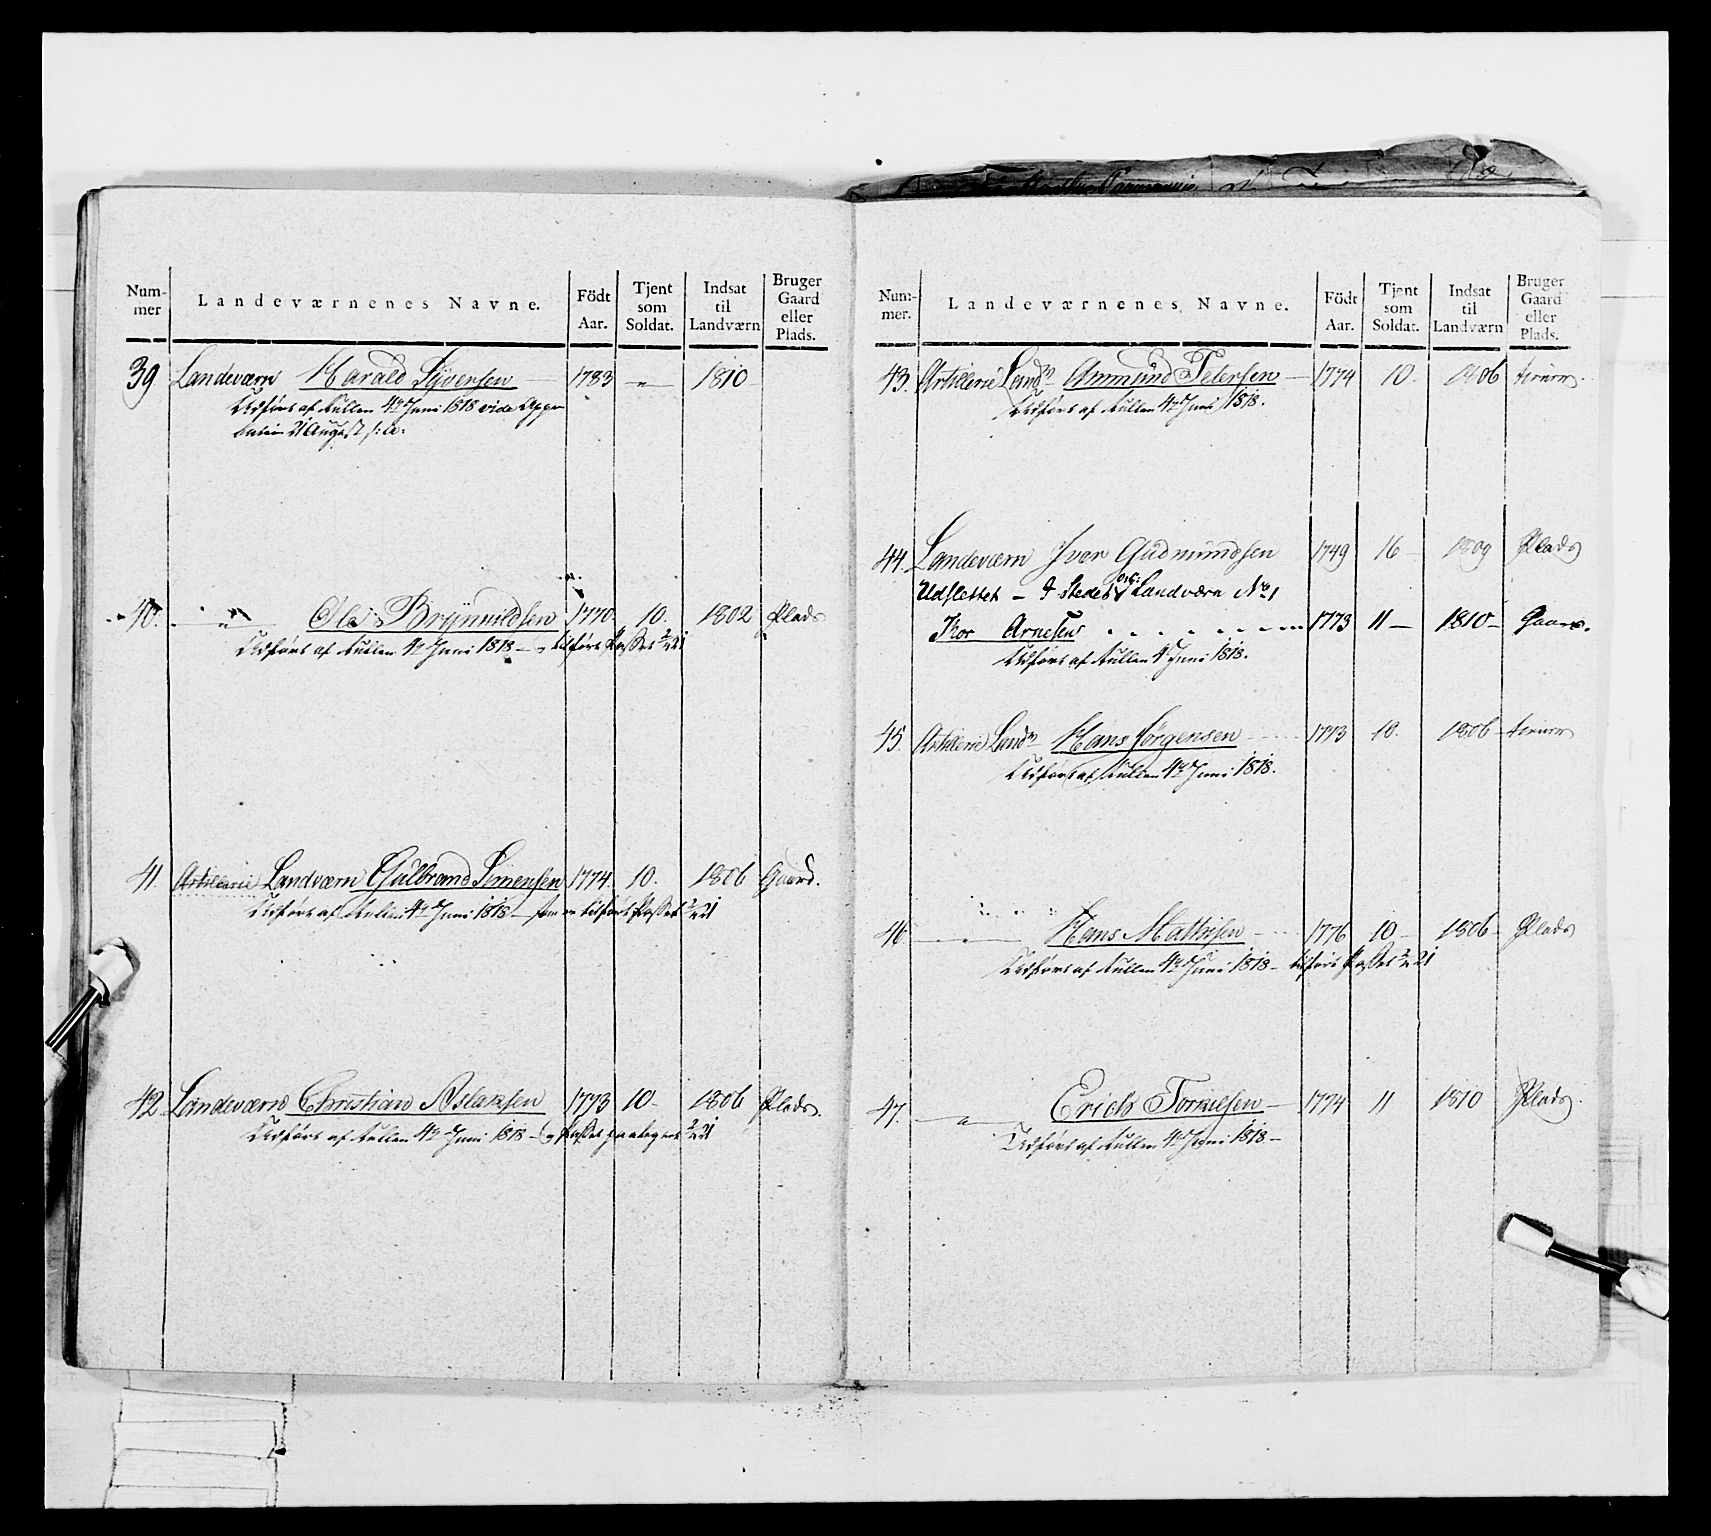 Num-
mer
Landeværnenes Navne.
Födt
Aar.
Tjent
som
Soldat.
Indsat
til
Landværn
Bruger
Gaard
eller
Plads.
39 Landeværn Harald Syversen — 1783 —"— 1810
Udført af Rullen 4de Juni 1818 vide Appro
bation 21 August s: a:
40. " —"— Ole Brynnildsen 1770. 10. 1802 Plads
Udført af Rullen 4de Juni 1818 —
41. Artillerie Landværn Gulbrand Simensen 1774. 10. 1806 Gaard.
Udført af Rullen 4de Juni 1818 —
42 Landeværn Christian Aslaksen 1773 10— 1806 Plads.
Udført af Rullen 4de Juni 1818 —
Num-
mer.
Landeværnenes Navne.
Födt
Aar.
Tjent
som
Soldat.
Indsat
til
Landværn
Bruger
Gaard
eller
Plads.
43. Artillerie Landn Ammund Petersen — 1774 10. 1806
Udført af Rullen 4de Juni 1818.
44. Landeværn Iver Gudmundsen 1749 16— 1809 Plads
Udslettet — I Stedet Landværn No 1
Tor Arnesen 1773 11— 1810— Gaard.
Udført af Rullen 4 Juni 1818.
45. Artillerie Landn Hans Jørgensen 1773 10. 1806—
Udført af Rullen 4de Juni 1818.
46 —"— Hans Mathisen 1776 10— 1806— Plads
Udført af Rullen 4de Juni 1818 —
47. —"— Erich Torkilsen — 1774 11 1810 Plads.
Udført af Rullen 4de Juni 1818 —